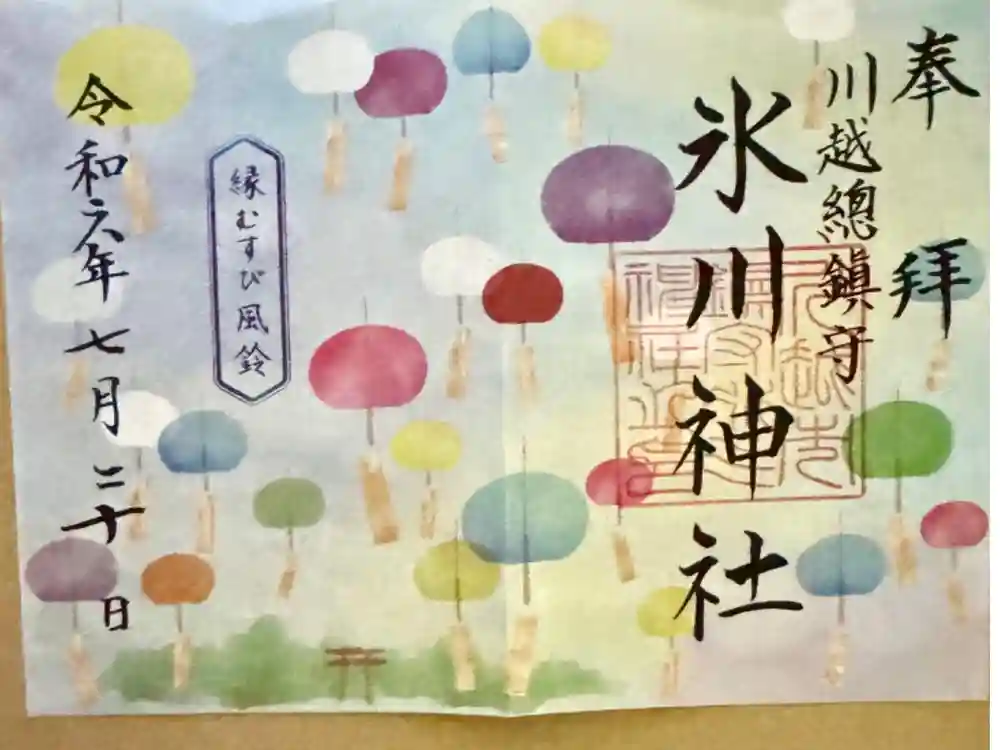 奉拝
川越總鎮守
氷川神社
縁むすび風鈴
令和六年七月二十日